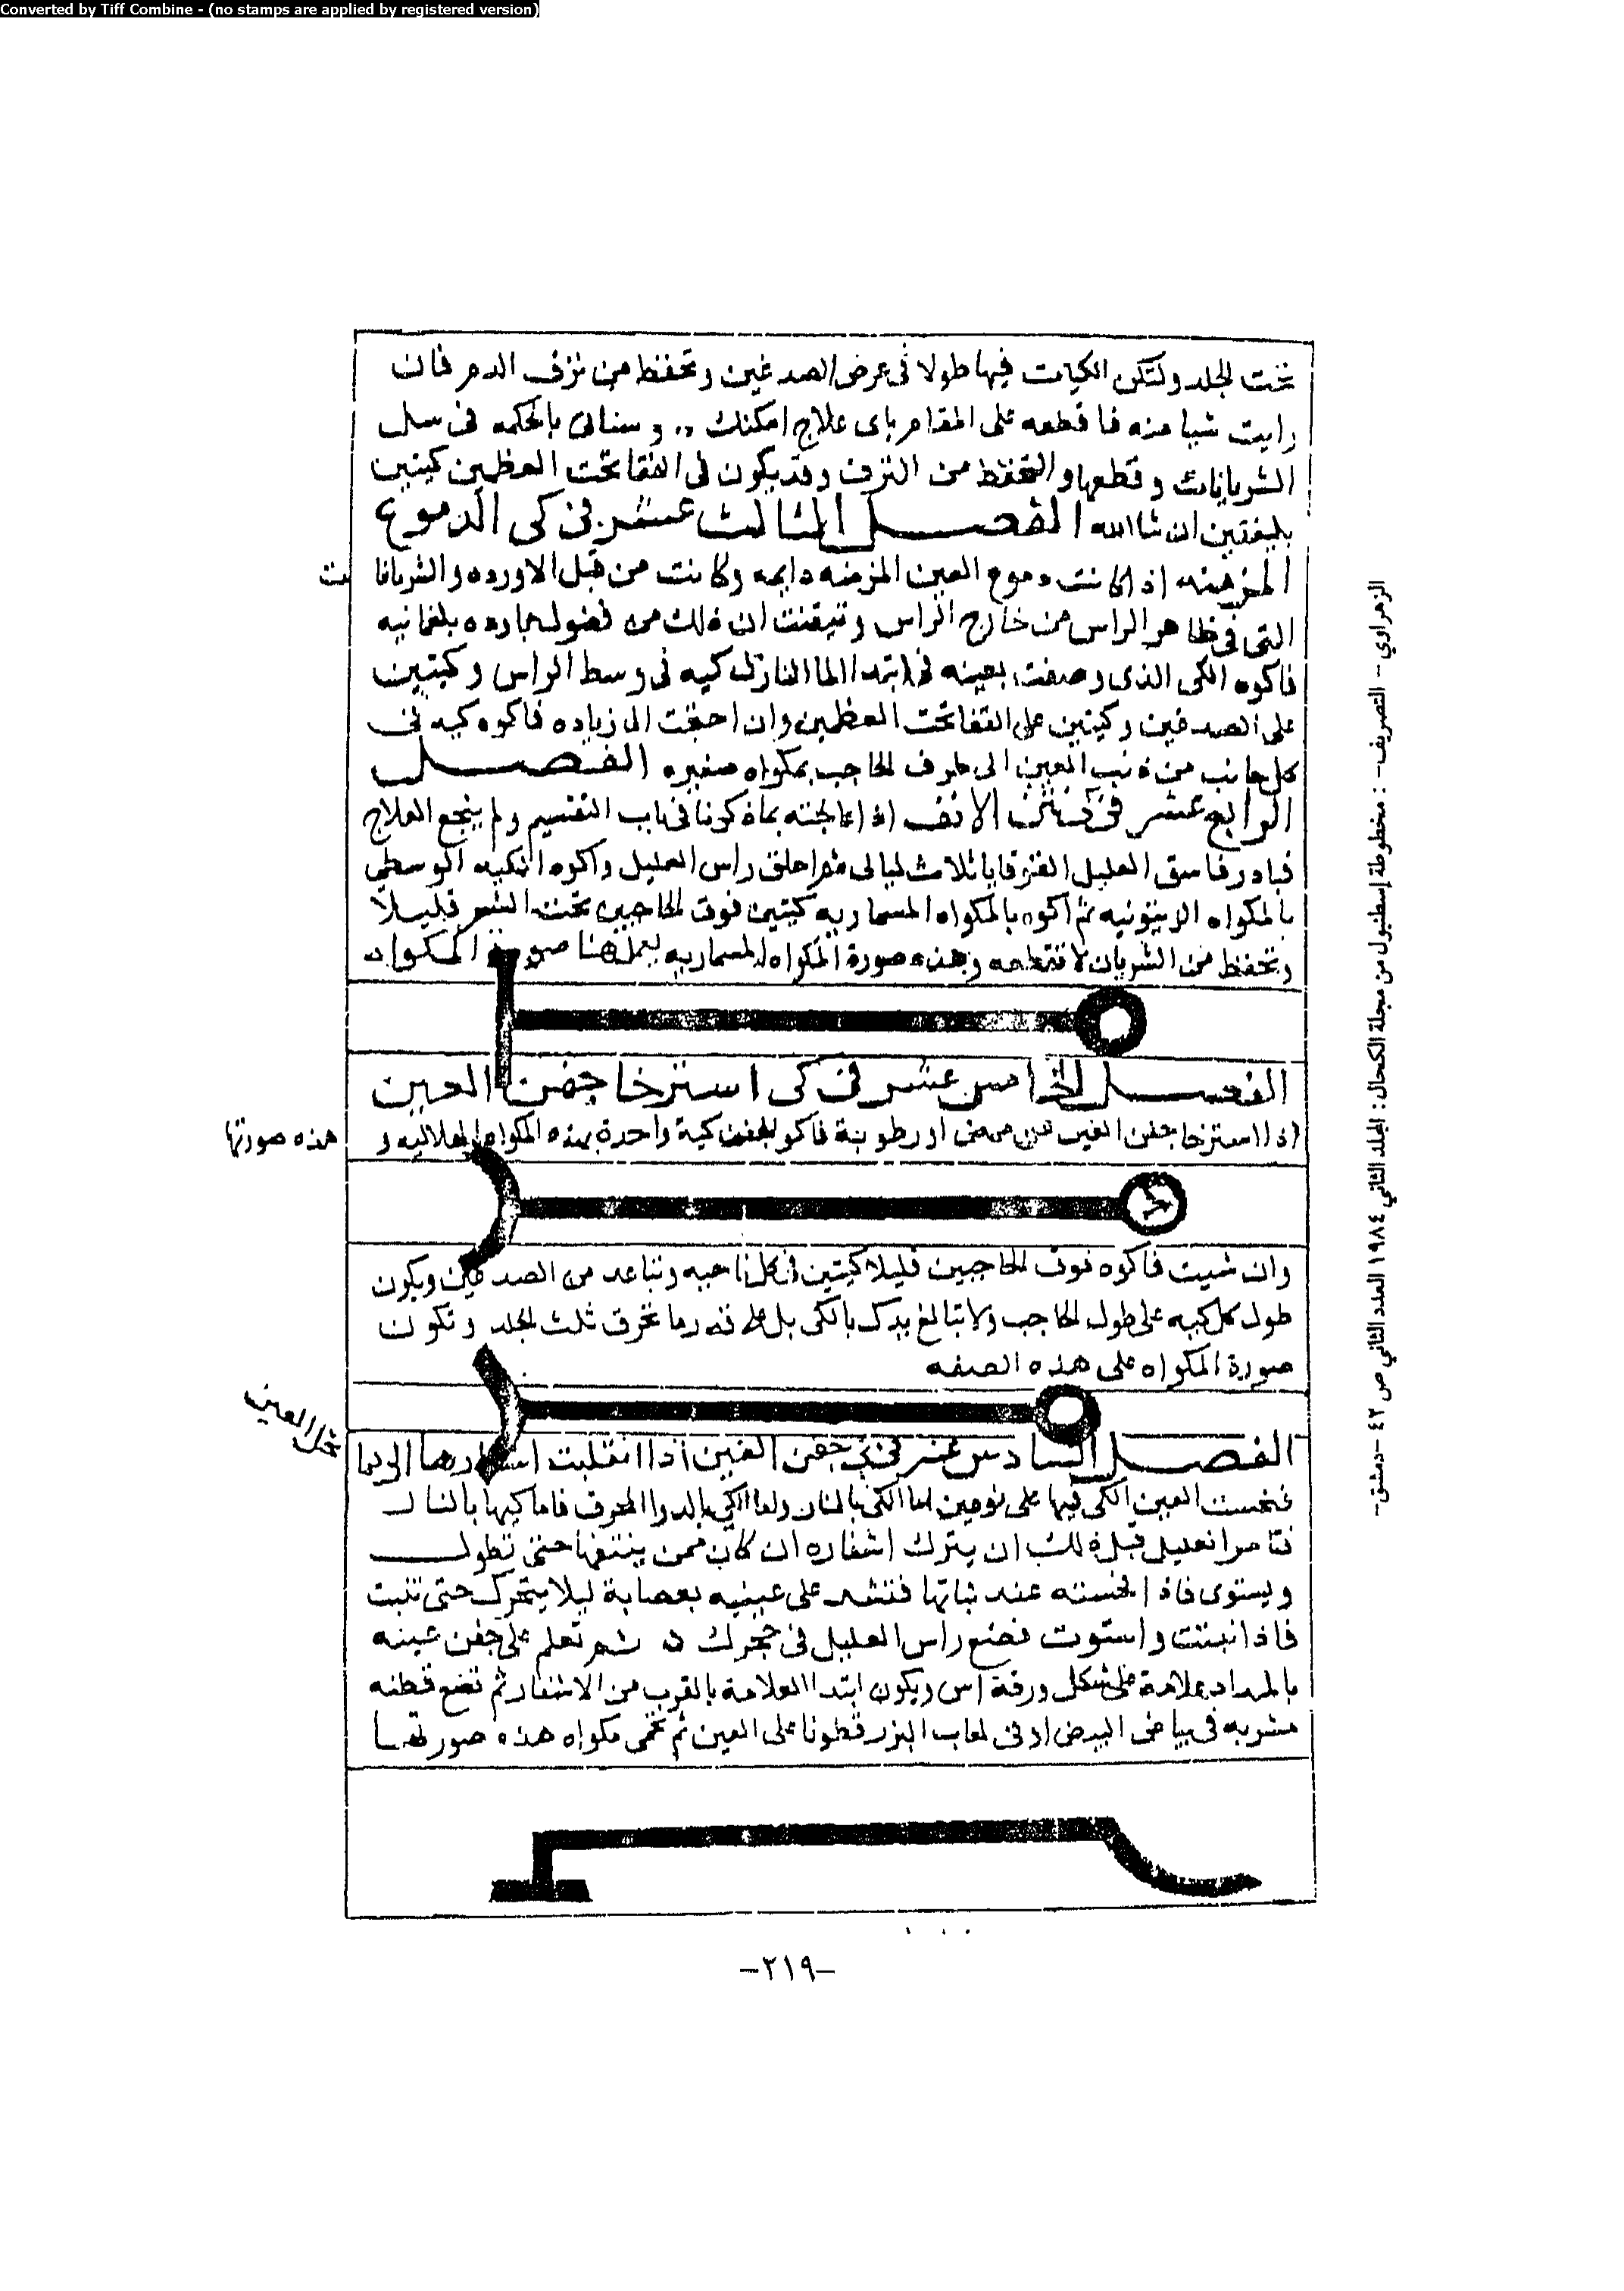 Converted by Tiff Combine - (no stamps are applied by registered version)
تحت الجلد ولتكن الكيات فيها طولا فى عرض الصدغين وتحفظ من نزف الدم فان
رايت شيا منه فاقطعه على المقام باى علاج امكنك .. وسناتى بالحكمه فى سل
الشريانات وقطعها والتحفظ من النزف وقد يكون فى القفا تحت العظمين كيتين
بليغتين ان شا الله الفصل الثالث عشر فى كى الدموع
المزمنه اذا كانت دموع العين المزمنه دايمه وكانت من قبل الاورده والشريانات
التى فى ظاهر الراس من خارج الراس وتيقنت ان ذلك من فضول بارده بلغمانيه
فاكوه الكى الذى وصفت بعينه فى ابتدا الما النازل كيه فى وسط الراس وكيتين
على الصدغين وكيتين على القفا تحت العظمين وان احتجت الى زياده فاكوه كيه فى
كل جانب من ذنب العين الى طرف الحاجب بمكواه صغيره الفصل
الرابع عشر فى نتن الانف اذا عالجته بما ذكرنا فى باب التقسيم ولم ينجع العلاج
فبادر فاسق العليل القوقايا ثلاث ليالى ثم احلق راس العليل واكوه الكيه الوسطى
بالمكواه الزيتونيه ثم اكوه بالمكواه المسماريه كيتين فوق الحاجبين تحت الشعر قليلا
وتحفظ من الشريان لا تقطعه وهذه صورة المكواه المسماريه يعمل هنا صورة المكواه
الفصل الخامس عشر فى كى استرخا جفن العين
اذا استرخا جفن العين من مرض او رطوبة فاكو الجفن كية واحدة بهذه المكواه الهلاليه و هذه صورتها
وان شيت فاكوه فوق الحاجبين قليلا كيتين فى كل ناحيه وتباعد من الصدغين ويكون
طول كل كيه على طول الحاجب ولا تبالغ يدك بالكى بل على قدر ما تحرق ثلث الجلد وتكون
صورة المكواه على هذه الصفه
الفصل السادس عشر فى كى جفن العين اذا انقلبت اشفارها الى داخل العين
فنخست العين الكى فيها على نوعين اما الكى بالنار واما الكى بالدوا المحرق فاما كيها بالنار
فتامر العليل قبل ذلك ان يترك اشفاره ان كان ممن ينتفها حتى تطول
ويستوى فاذا نخسته عند نباتها فتشد على عينيه بعصابة ليلا يتحرك حتى تنبت
فاذا نبتت واستوت فضع راس العليل فى حجرك ه ثم تعلم على جفن عينه
بالمداد علامة على شكل ورقة آس ويكون ابتدا العلامة بالقرب من الاشفار ثم تضع قطنه
مشربه فى بياض البيض او فى لعاب البزر قطونا على العين ثم تحمى مكواه هذه صورتها
الزهراوي - التصريف - : مخطوطة إسطنبول من مجلة الكحال : المجلد الثاني ١٩٨٤ العدد الثاني ص ٤٢ - دمشق -
-٢١٩-